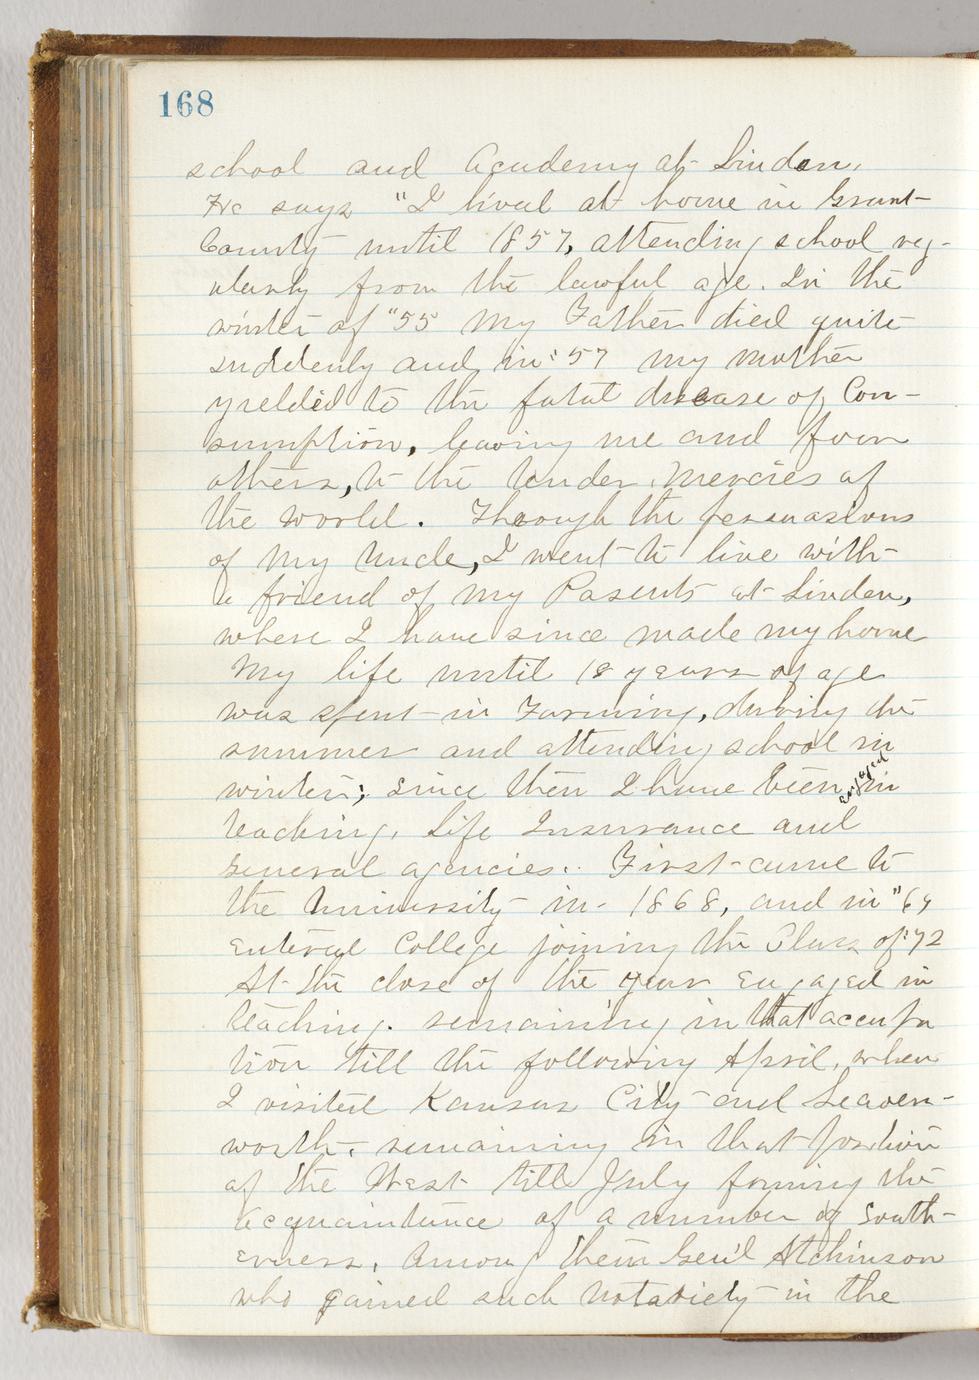 168
school and Academy at Linden.
He says "I lived at home in Grant
County until 1857, attending school reg-
ularly from the lawful age. In the
winter of "55 My Father died quite
suddenly and in '57 my mother
yielded to the fatal disease of Con-
sumption, leaving me and four
others, to the tender mercies of
the world. Through the persuasions
of My Uncle, I went to live with
a friend of my Parents at Linden,
where I have since made my home
My life until 18 years of age
was spent in Farming, during the
summer and attending school in
winter; since then I have been engaged in
teaching, Life Insurance and
General agencies. First came to
the University in 1868, and in "69
entered College joining the Class of '72
At the close of the year Engaged in
teaching. remaining in that occupa
tion till the following April, when
I visited Kansas City and Leaven-
worth, remaining in that portion
of the West till July forming the
acquaintance of a number of South-
erners, Among them Gen'l Atchinson
who gained such notariety in the